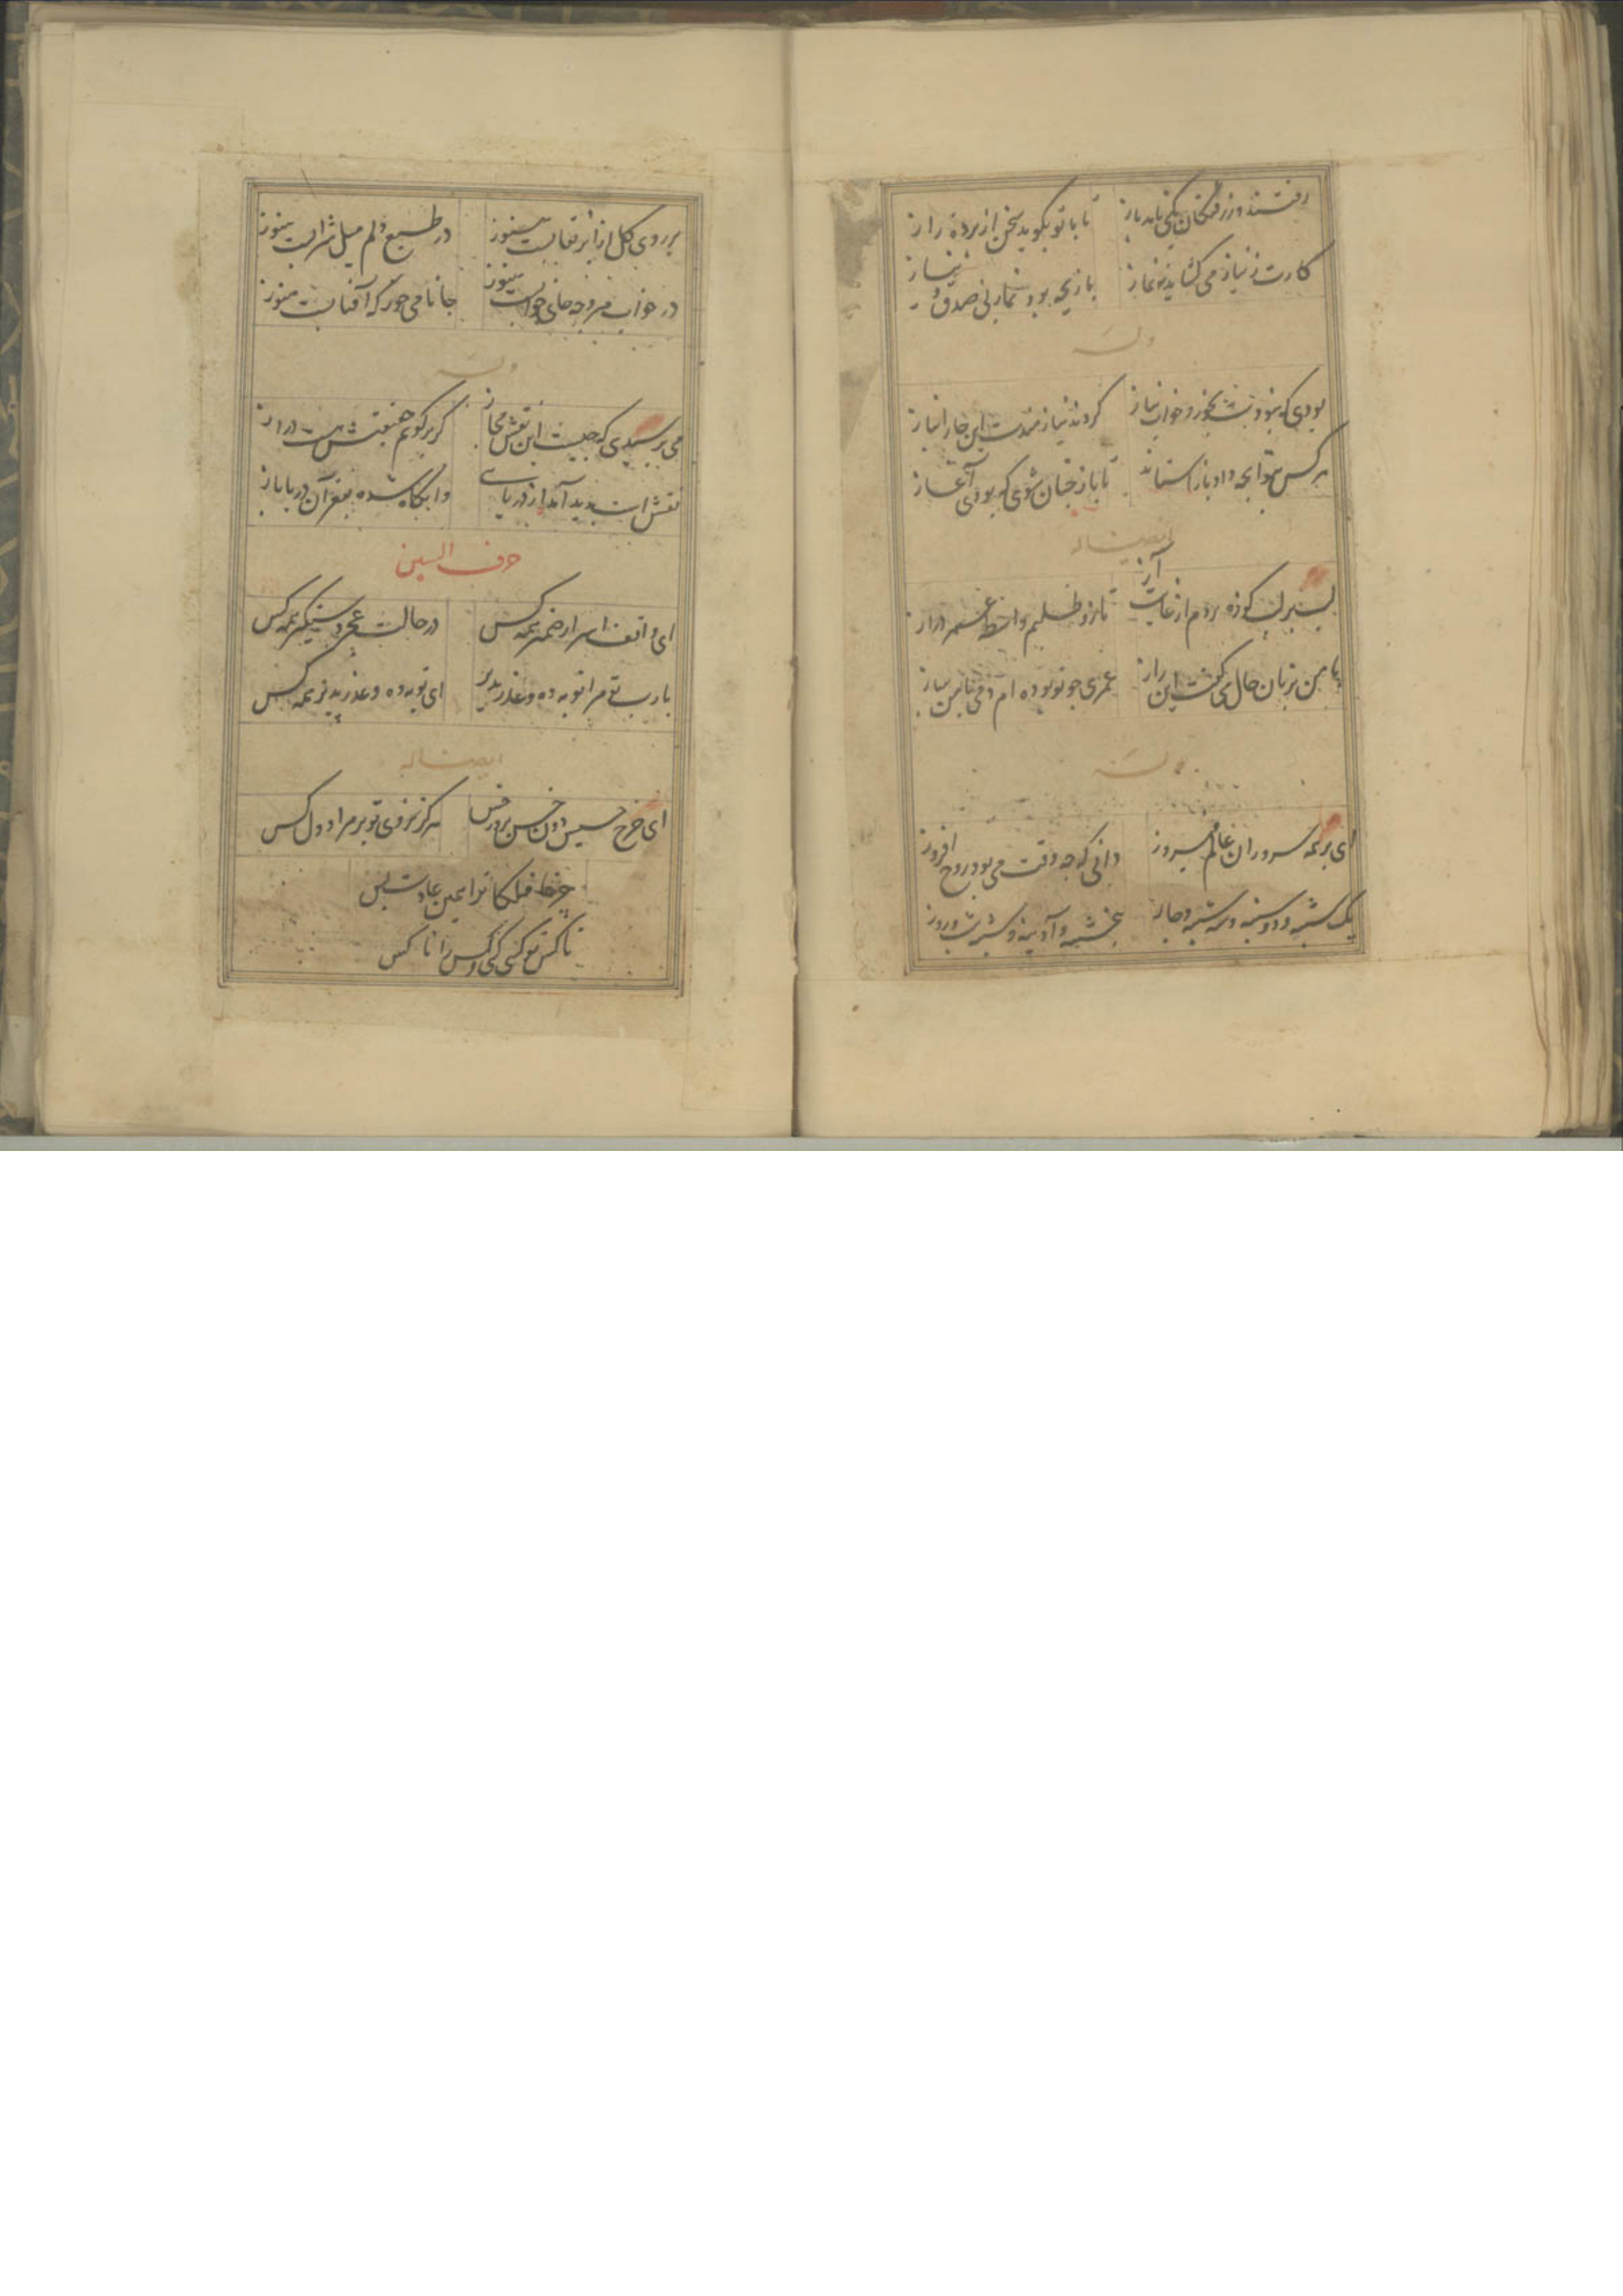 رفتند و ز رفتگان یکی نامد باز تا با تو بگوید سخن از پرده راز
کارت ز نیاز می گشاید نه نماز بازیچه بود نماز بی صدق و نیاز
وله
بودی که نبودت بخور و خواب نیاز کردند نیازمندت این چار انباز
هر کس بتو آنچه داد باز استاند تا باز چنان شوی که بودی آغاز
ایضا له
لب بر لب کوزه بردم از غایت آز تا زو طلبم واسطه عمر دراز
با من بزبان حال می گفت این راز عمری چو تو بوده ام دمی با من ساز
وله
ای بر همه سروران عالم فیروز دانی که چه وقت می بود روح افروز
یک شنبه و دو شنبه و سه شنبه و چار پنجشنبه و آدینه و شنبه شب و روز
بر روی گل از ابر نقابست هنوز در طبع دلم میل شرابست هنوز
در خواب مرو چه جای خوابست هنوز جانا می خور که آفتابست هنوز
وله
می پرسیدی که چیست این نقش مجاز گر برگویم حقیقتش هست دراز
نقشی است پدید آمد از دریایی و آنگاه شده بقعر آن دریا باز
حرف السین
ای واقف اسرار ضمیر همه کس در حالت عجز دستگیر همه کس
یا رب تو مرا توبه ده و عذر پذیر ای توبه ده و عذر پذیر همه کس
ایضا له
ای چرخ خسیس دون خس پرور خس هرگز نروی تو بر مراد دل کس
چرخا فلکا ترا همین عادت بس
ناکس تو کسی کنی و کس را ناکس